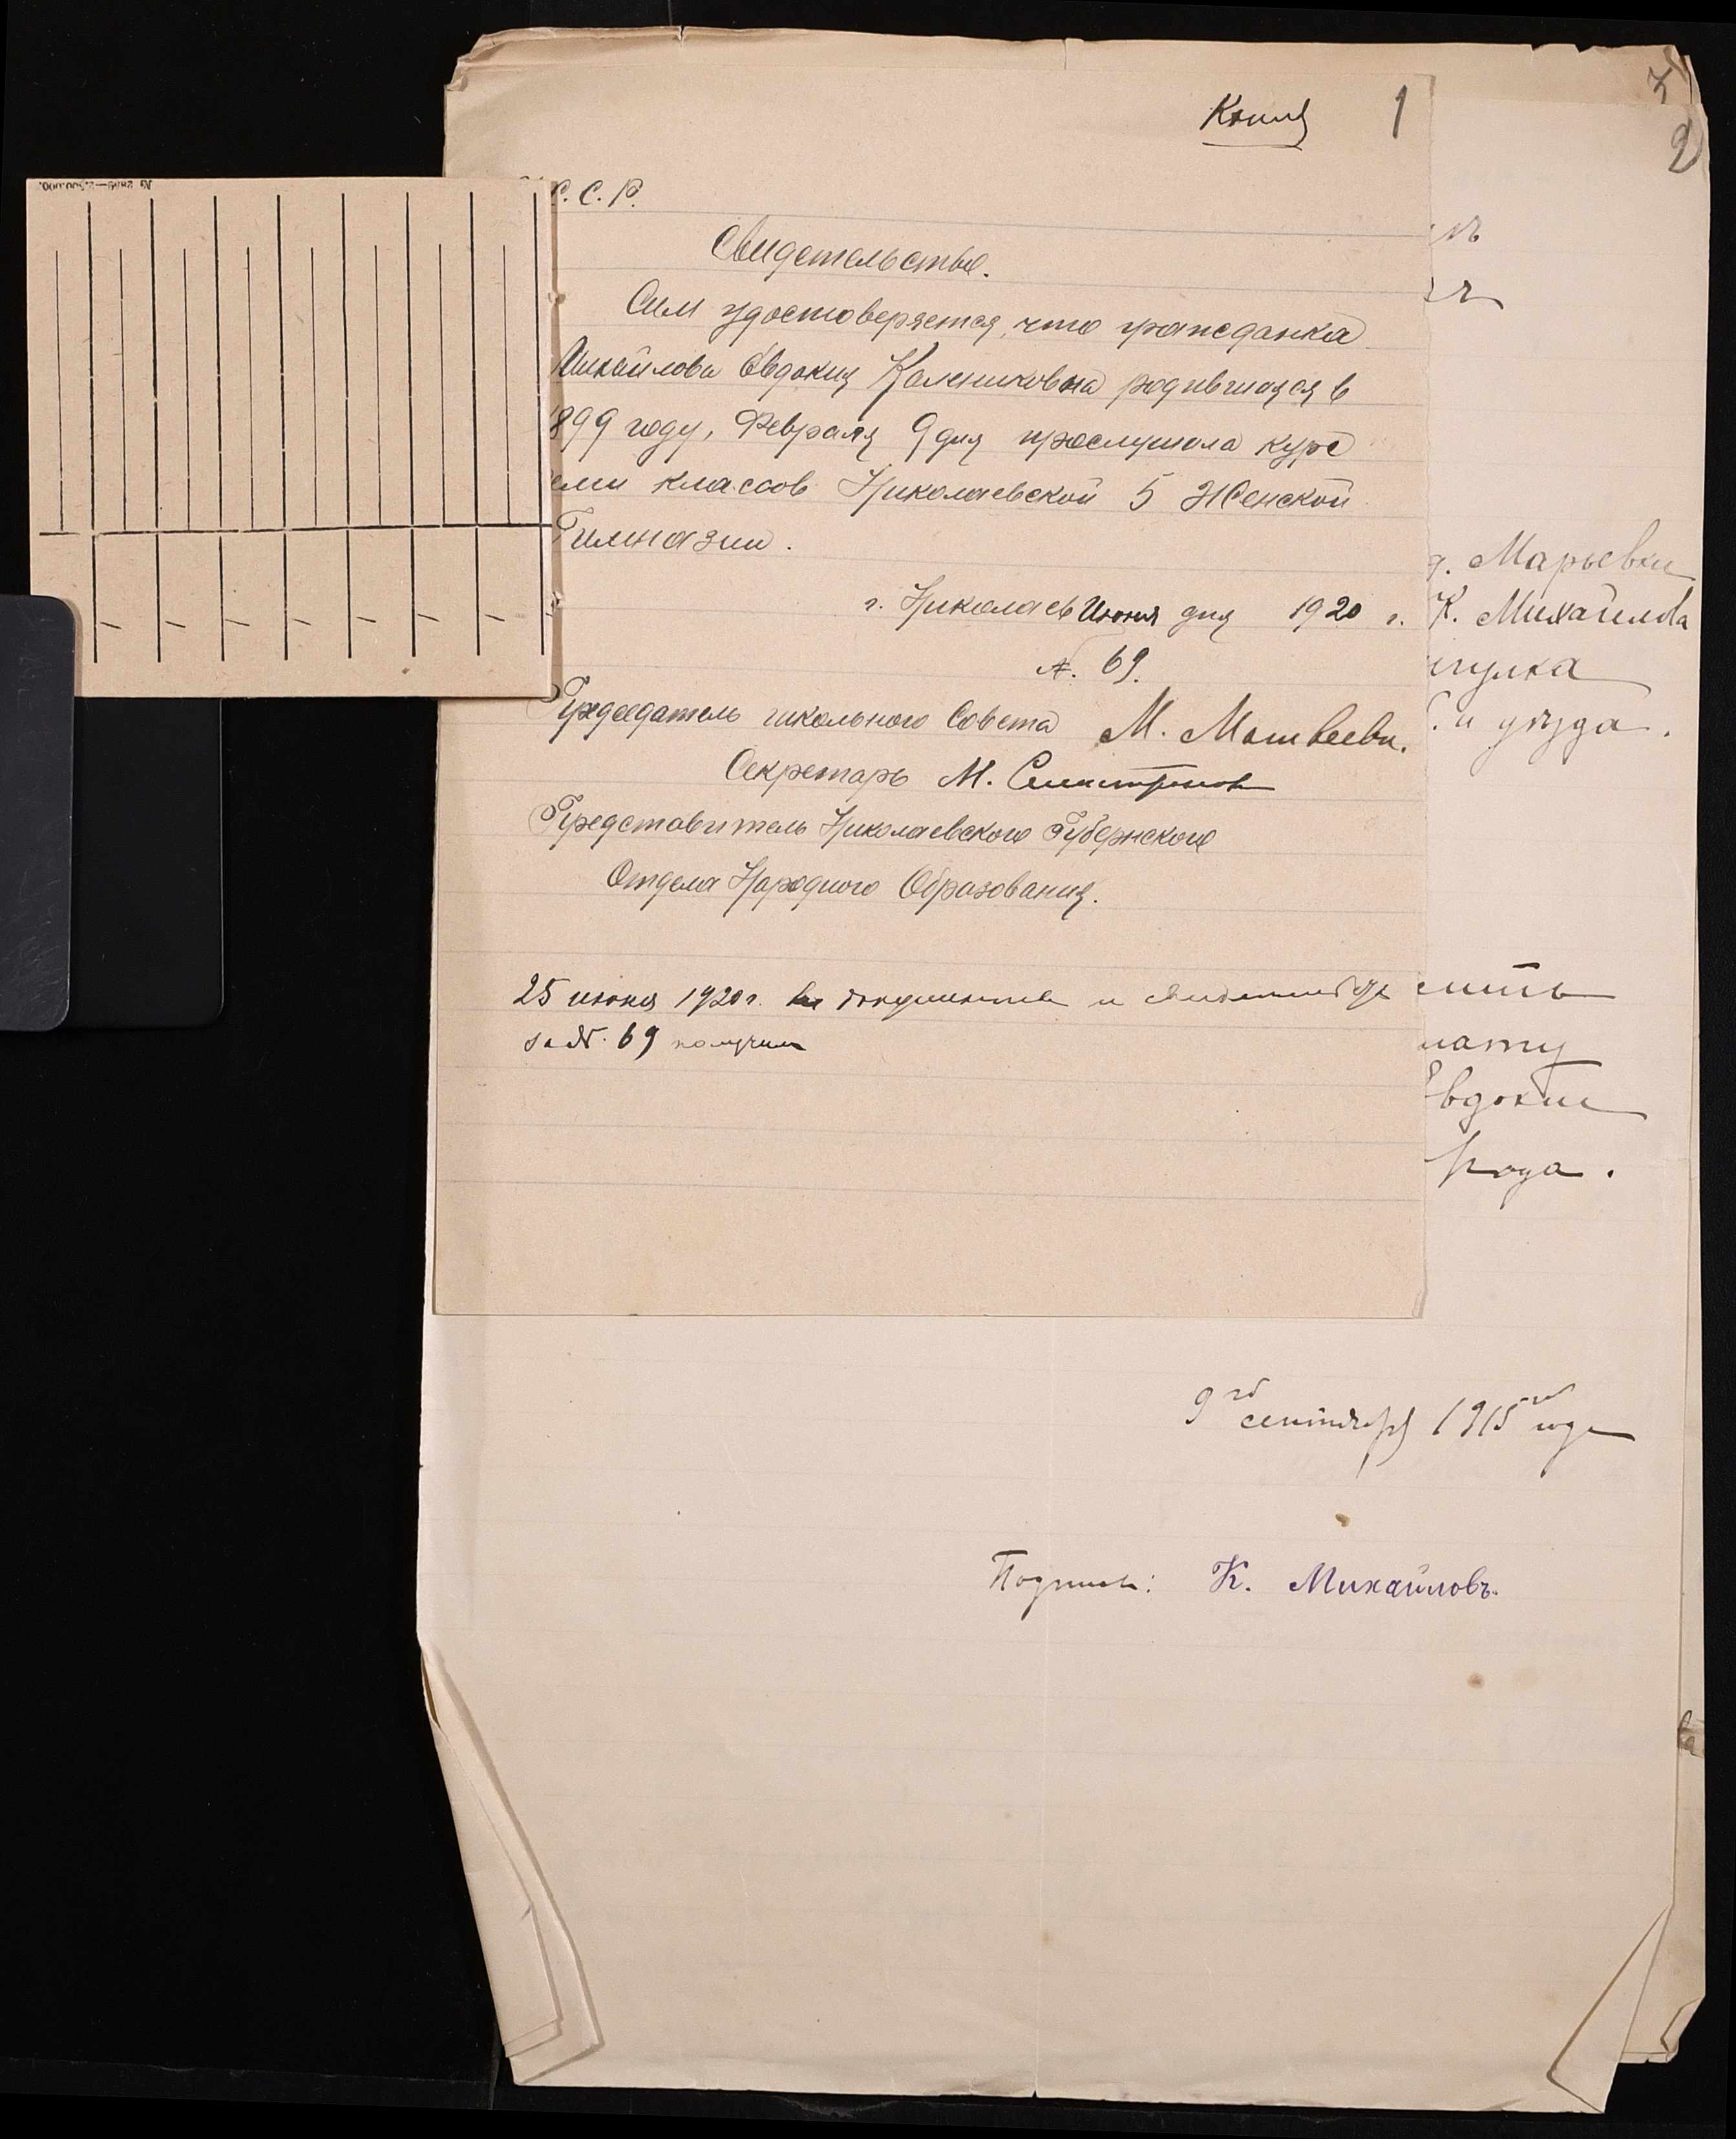 Копия 1
2
С. С. Р.
Свидетельство.
Сим удостоверяется, что гражданка
Михайлова Евдокия Калениковна родившаяся в
1899 году, Февраля 9 дня прослушала курс
семи классов Николаевской 5 Женской
Гимназии.
г. Николаев Июня дня 1920 г.
№. 69.
Председатель школьного Совета М. Матвеева.
Секретарь М.
Представитель Николаевского Губернского
Отдела Народного Образования.
25 июня 1920 г. документы и свидетельство
за №. 69 получил
д. Марьевки
К. Михайлова
и уѣзда.
Евдокии
9го сентября 1915го года
Подпись: К. Михайловъ.